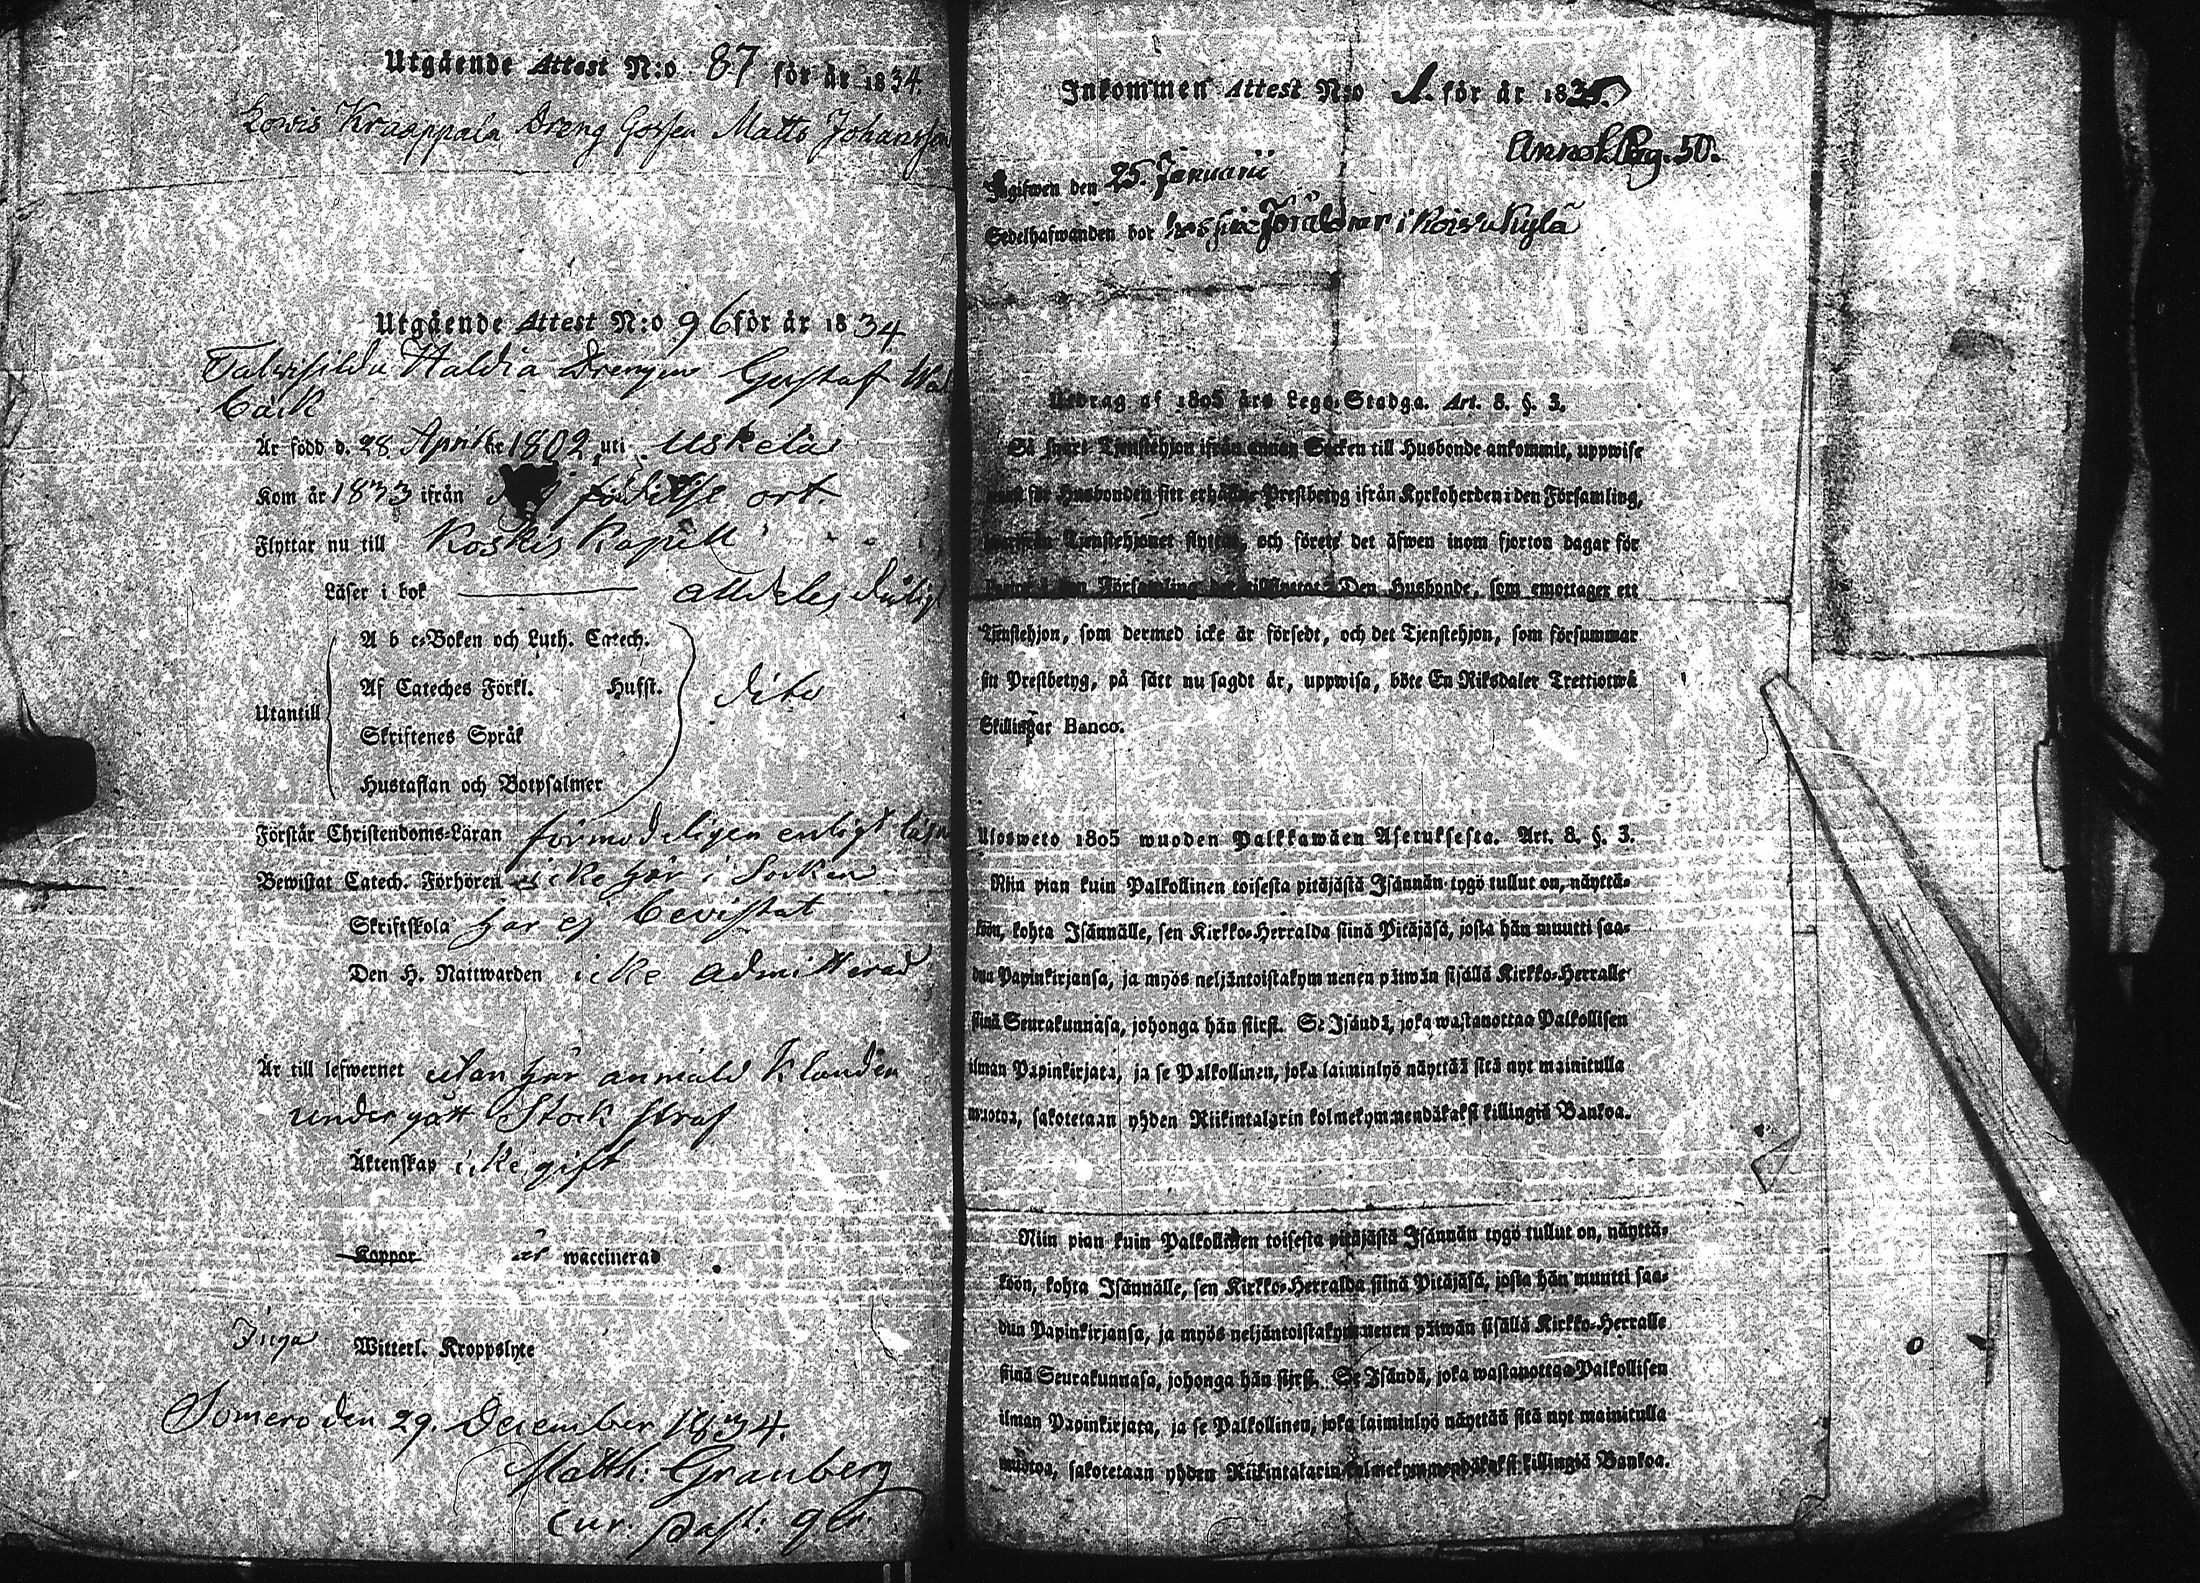 Utgående Attest N:o 87 för år 1834.
Lowis Kraappala Dreng Gossen Matts Johansson
Utgående Attest N:o 96 för år 1834
Haldia Drengen Gustaf
bäck
Är född d. 28 April år 1802 uti Uskela
Kom år 1833 ifrån födelse ort
Flyttar nu till Koskis Kapell
Läser i bok alldeles
A b c-Boken och Luth. Catech.
Af Cateches Förkl. Hufst.
Utantill dito
Skriftenes Språk
Hustaflan och Botpsalmer
Förstår Christendoms-Läran förmodeligen enligt
Bewistat Catech. Förhören icke här i Socken
Skriftskola har ej bevistat
Den H. Nattwarden icke admitterad
Är till lefwernet utan här anmäld klander
undergått Stock straf
Äktenskap icke gift
Koppor är waccinerad
Inga Witterl. Kroppslyte
Somero den 29. December 1834.
Matth: Granberg
Cur. past:
Inkommen Attest N:o 1. för år 1835.
Pag. 50.
Ingifwen den 25. Januarii
Sedelhafwanden bor hos sina Föräldrar i Koiwukylä
Utdrag af 1805 års Lego-Stadga. Art. 8. §. 3.
Så snart Tjenstehjon ifrån annan Socken till Husbonde ankommit, uppwise
för Husbonden sitt erhållne Prestbetyg ifrån Kyrkoherden i den Församling,
Tjenstehjonet flyttat, och förete det äfwen inom fjorton dagar för
Församling Den Husbonde, som emottager ett
Tjenstehjon, som dermed icke är försedt, och det Tjenstehjon, som försummar
sitt Prestbetyg, på sätt nu sagdt är, uppwisa, böte En Riksdaler Trettiotwå
Skillingar Banco.
Ulosweto 1805 wuoden Palkkawäen Asetuksesta. Art. 8. §. 3.
Niin pian kuin Palkollinen toisesta pitäjästä Isännän tygö tullut on, näyttä-
köön, kohta Isännälle, sen Kirkko-Herralda siinä Pitäjäsä, josta hän muutti saa-
dun Papinkirjansa, ja myös neljäntoistakymmenen päiwän sisällä Kirkko-Herralle
siinä Seurakunnasa, johonga hän siirst. Se Isändä, joka wastanottaa Palkollisen
ilman Papinkirjata, ja se Palkollinen, joka laiminlyö näyttää sitä nyt mainitulla
muotoa, sakotetaan yhden Riikintalarin kolmekymmendäkaksi killingiä Bankoa.
Niin pian kuin Palkollinen toisesta pitäjästä Isännän tygö tullut on, näyttä-
köön, kohta Isännälle, sen Kirkko-Herralda siinä Pitäjäsä, josta hän muutti saa-
dun Papinkirjansa, ja myös neljäntoistakymmenen päiwän sisällä Kirkko-Herralle
siinä Seurakunnasa, johonga hän siirst. Se Isändä, joka wastanottaa Palkollisen
ilman Papinkirjata, ja se Palkollinen, joka laiminlyö näyttää sitä nyt mainitulla
muotoa, sakotetaan yhden Riikintalarin kolmekymmendäkaksi killingiä Bankoa.